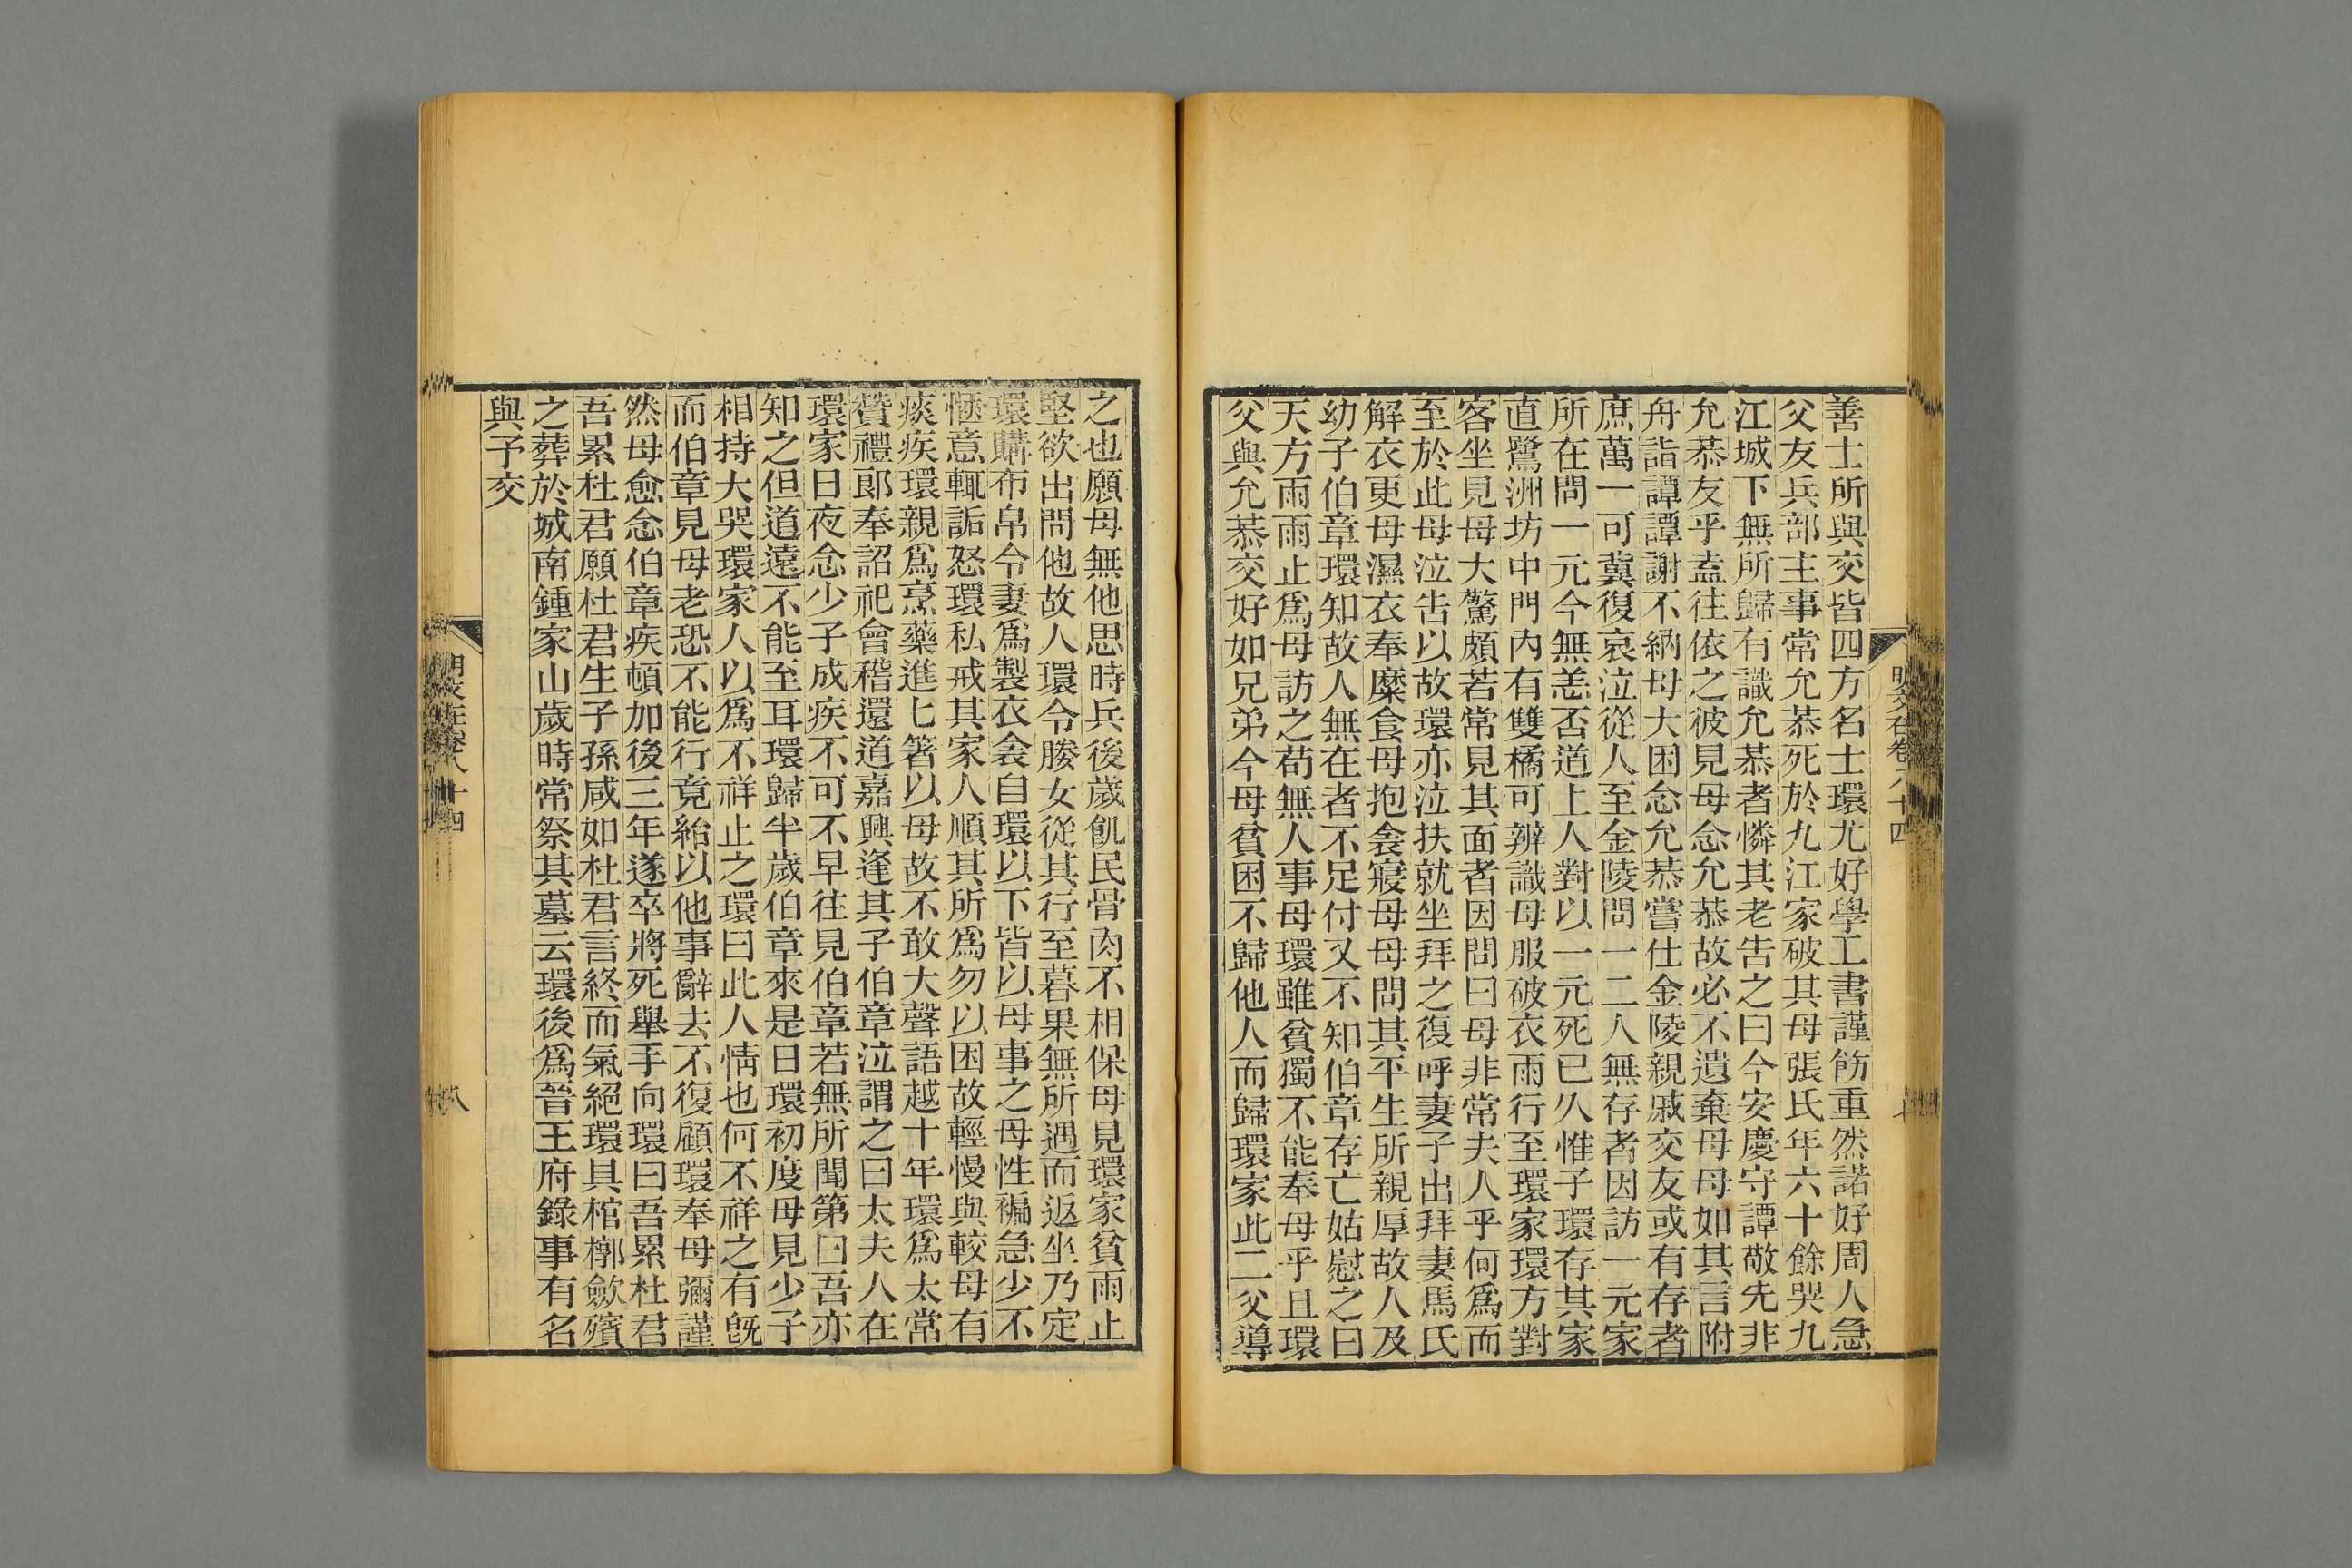 善士所與交皆四方名士環尤好學工書謹飭重然諾好周人急
父友兵部主事常允恭死於九江家破其母張氏年六十餘哭九
江城下無所歸有識允恭者憐其老告之曰今安慶守譚敬先非
允恭友乎盍往依之彼見母念允恭故必不遺棄母母如其言附
舟詣譚譚謝不納母大困念允恭嘗仕金陵親戚交友或有存者
庶萬一可冀復哀泣從人至金陵問一二人無存者因訪一元家
所在問一元今無恙否道上人對以一元死已久惟子環存其家
直鷺洲坊中門內有雙橘可辨識母服破衣雨行至環家環方對
客坐見母大驚頗若常見其面者因問曰母非常夫人乎何爲而
至於此母泣告以故環亦泣扶就坐拜之復呼妻子出拜妻馬氏
解衣更母濕衣奉糜食母抱衾寢母母問其平生所親厚故人及
幼子伯章環知故人無在者不足付又不知伯章存亡姑慰之曰
天方雨雨止爲母訪之苟無人事母環雖貧獨不能奉母乎且環
父與允恭交好如兄弟今母貧困不歸他人而歸環家此二父導
明文在卷八十四
之也願母無他思時兵後歲飢民骨肉不相保母見環家貧雨止
堅欲出問他故人環令媵女從其行至暮果無所遇而返坐乃定
環購布帛令妻爲製衣衾自環以下皆以母事之母性褊急少不
愜意輒詬怒環私戒其家人順其所爲勿以困故輕慢與較母有
痰疾環親爲烹藥進匕箸以母故不敢大聲語越十年環爲太常
贊禮郎奉詔祀會稽還道嘉興逢其子伯章泣謂之曰太夫人在
環家日夜念少子成疾不可不早往見伯章若無所聞第曰吾亦
知之但道遠不能至耳環歸半歲伯章來是日環初度母見少子
相持大哭環家人以爲不祥止之環曰此人情也何不祥之有旣
而伯章見母老恐不能行竟紿以他事辭去不復顧環奉母彌謹
然母愈念伯章疾頓加後三年遂卒將死舉手向環曰吾累杜君
吾累杜君願杜君生子孫咸如杜君言終而氣絕環具棺槨斂殯
之葬於城南鍾家山歲時常祭其墓云環後爲晉王府錄事有名
與予交
明文在卷八十四
八